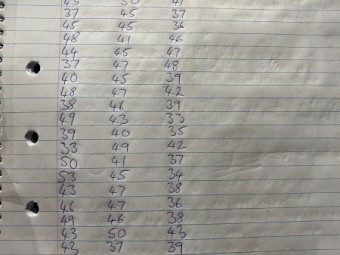 43 50 41
37 45 37
45 45 36
48 41 46
44 45 47
37 47 48
40 45 39
48 47 42
38 46 39
49 43 33
39 40 35
33 49 42
50 41 37
53 45 34
43 47 38
46 47 36
49 46 38
43 50 43
43 37 39